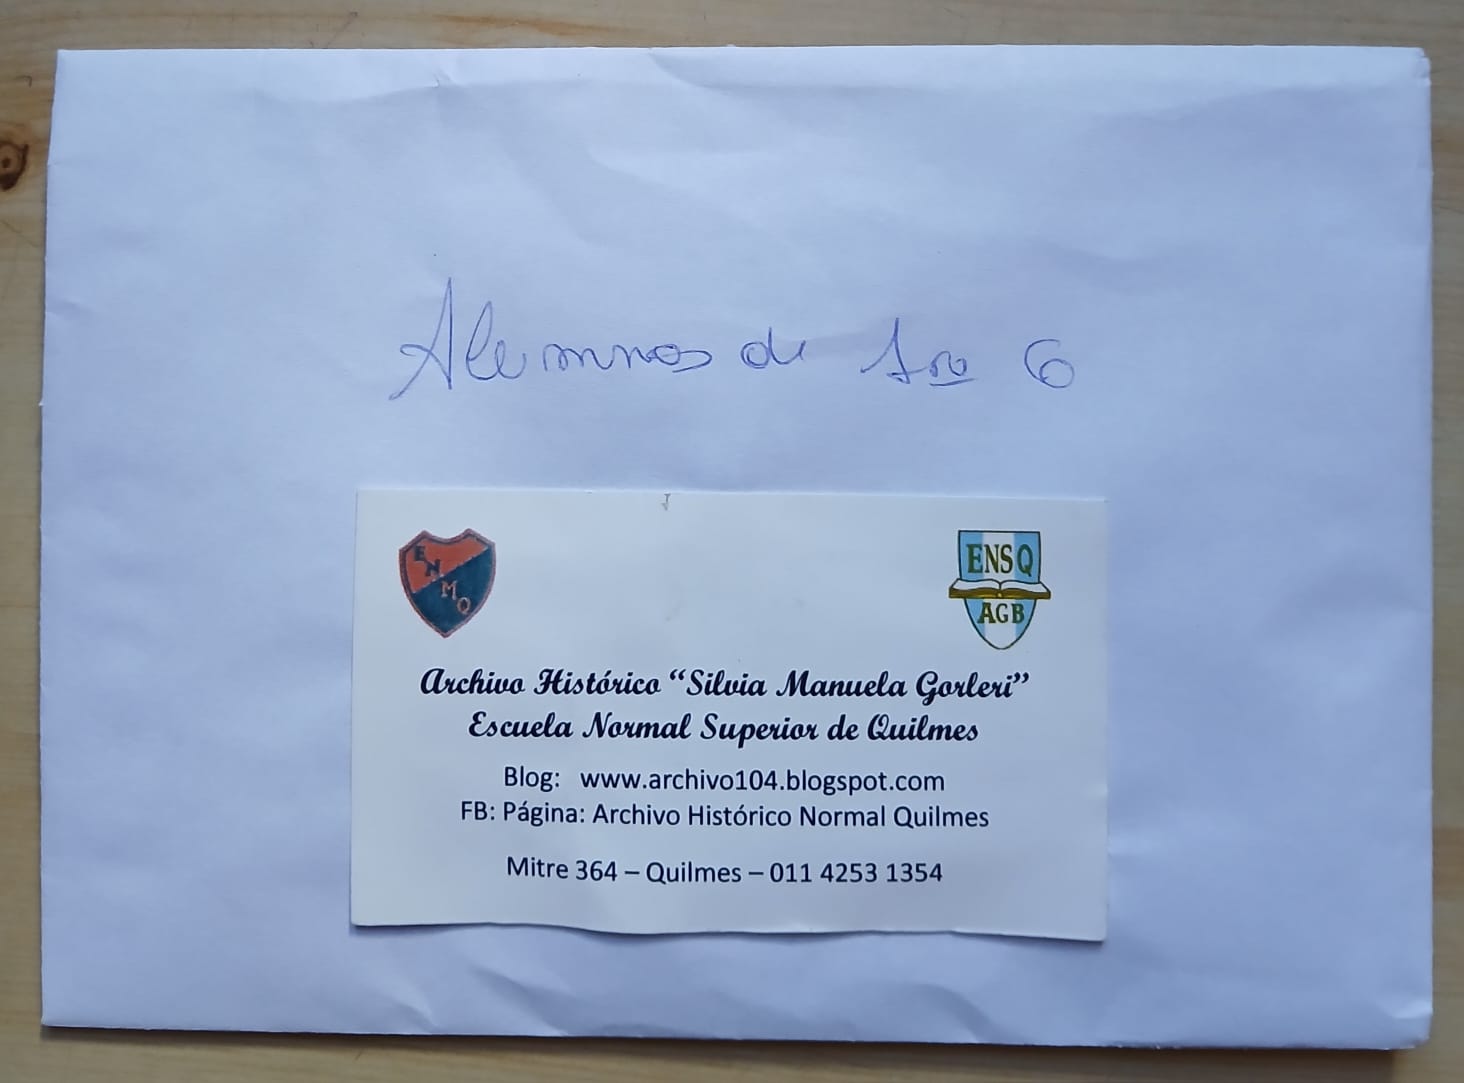 Alumnos de 1ro 6
ENMQ
ENSQ
AGB
Archivo Histórico “Silvia Manuela Gorleri”
Escuela Normal Superior de Quilmes
Blog: www.archivo104.blogspot.com
FB: Página: Archivo Histórico Normal Quilmes
Mitre 364 – Quilmes – 011 4253 1354